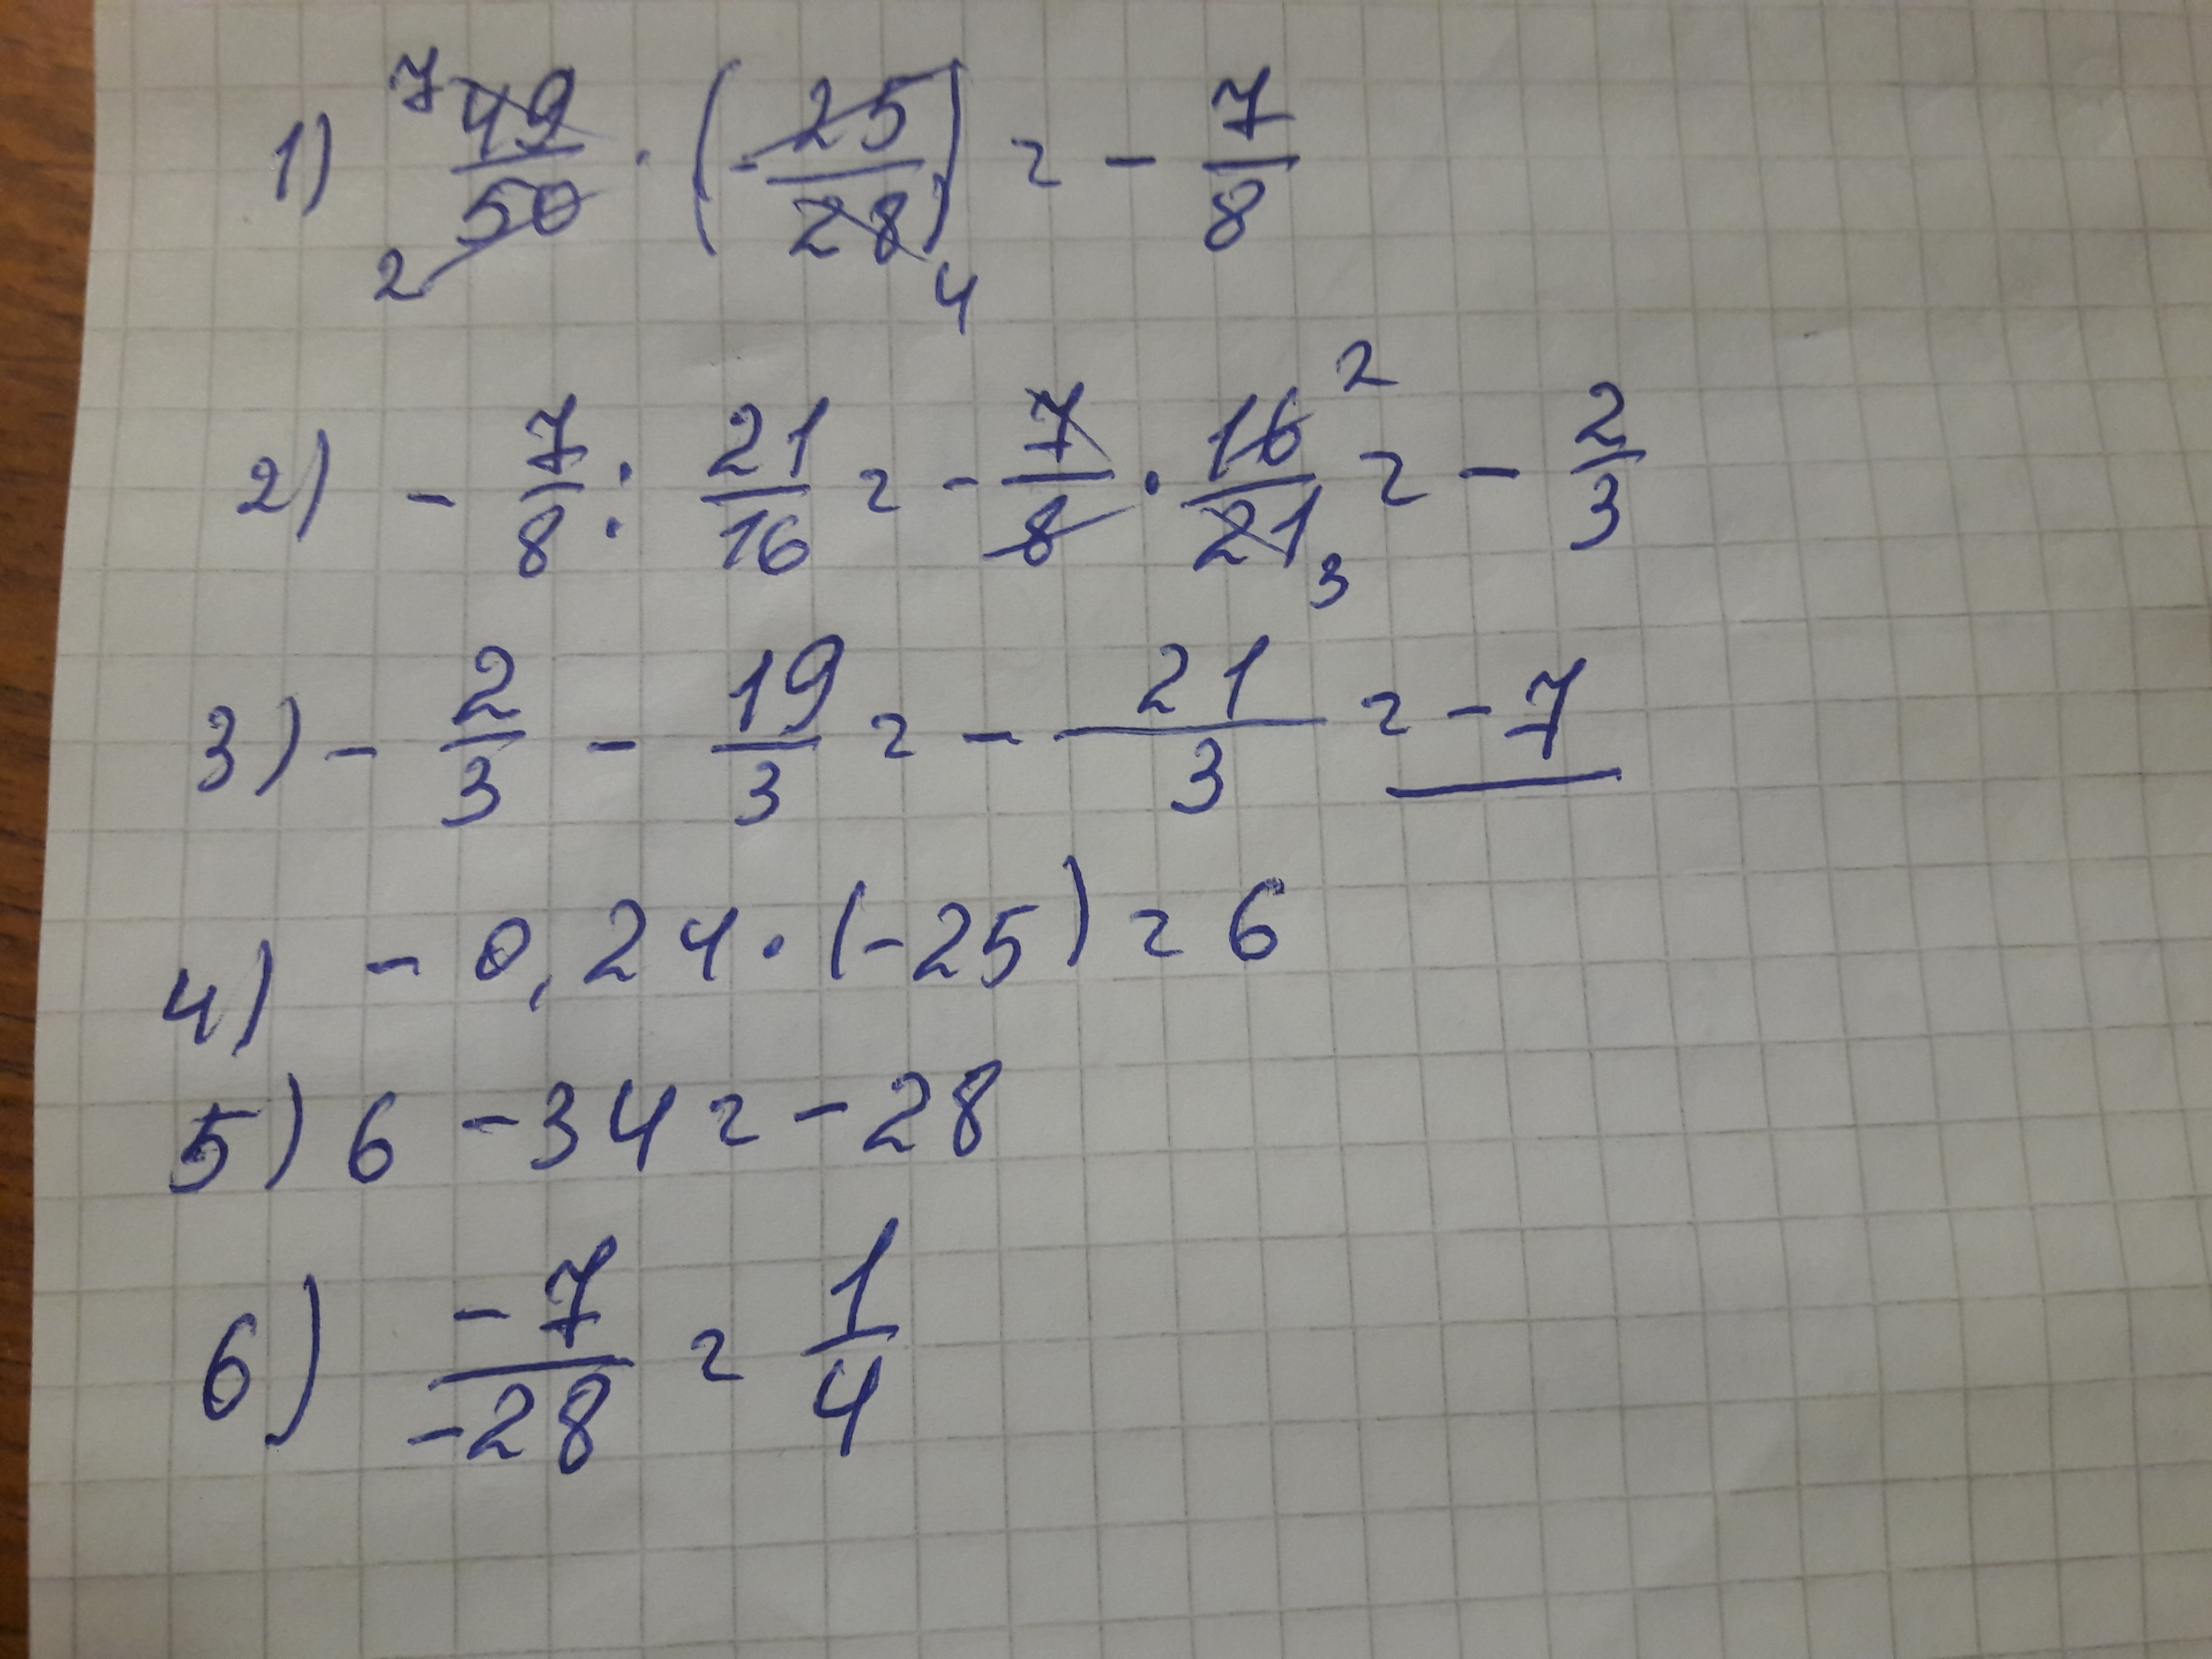 1) 7 49/50 2 · (-25/28) 4 = - 7/8
2) - 7/8 : 21/16 = - 7/8 · 16/21 2 3 = - 2/3
3) - 2/3 - 19/3 = - 21/3 = - 7
4) - 0,24 · (-25) = 6
5) 6 - 34 = - 28
6) -7/-28 = 1/4